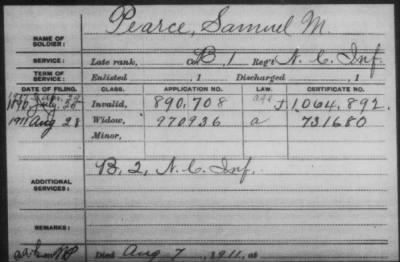 NAME OF SOLDIER: Pearce, Samuel M.
SERVICE: Late rank, Co. B, 1 Reg't N. C. Inf.
TERM OF SERVICE: Enlisted , 1 Discharged , 1
DATE OF FILING. CLASS. APPLICATION NO. LAW. CERTIFICATE NO.
1890 July 28 Invalid, 890,708 J. 1,064,892.
1911 Aug 28 Widow, 970936 a 731680
Minor,
ADDITIONAL SERVICES: B. 2, N. C. Inf.
REMARKS:
Died Aug 7, 1911, at